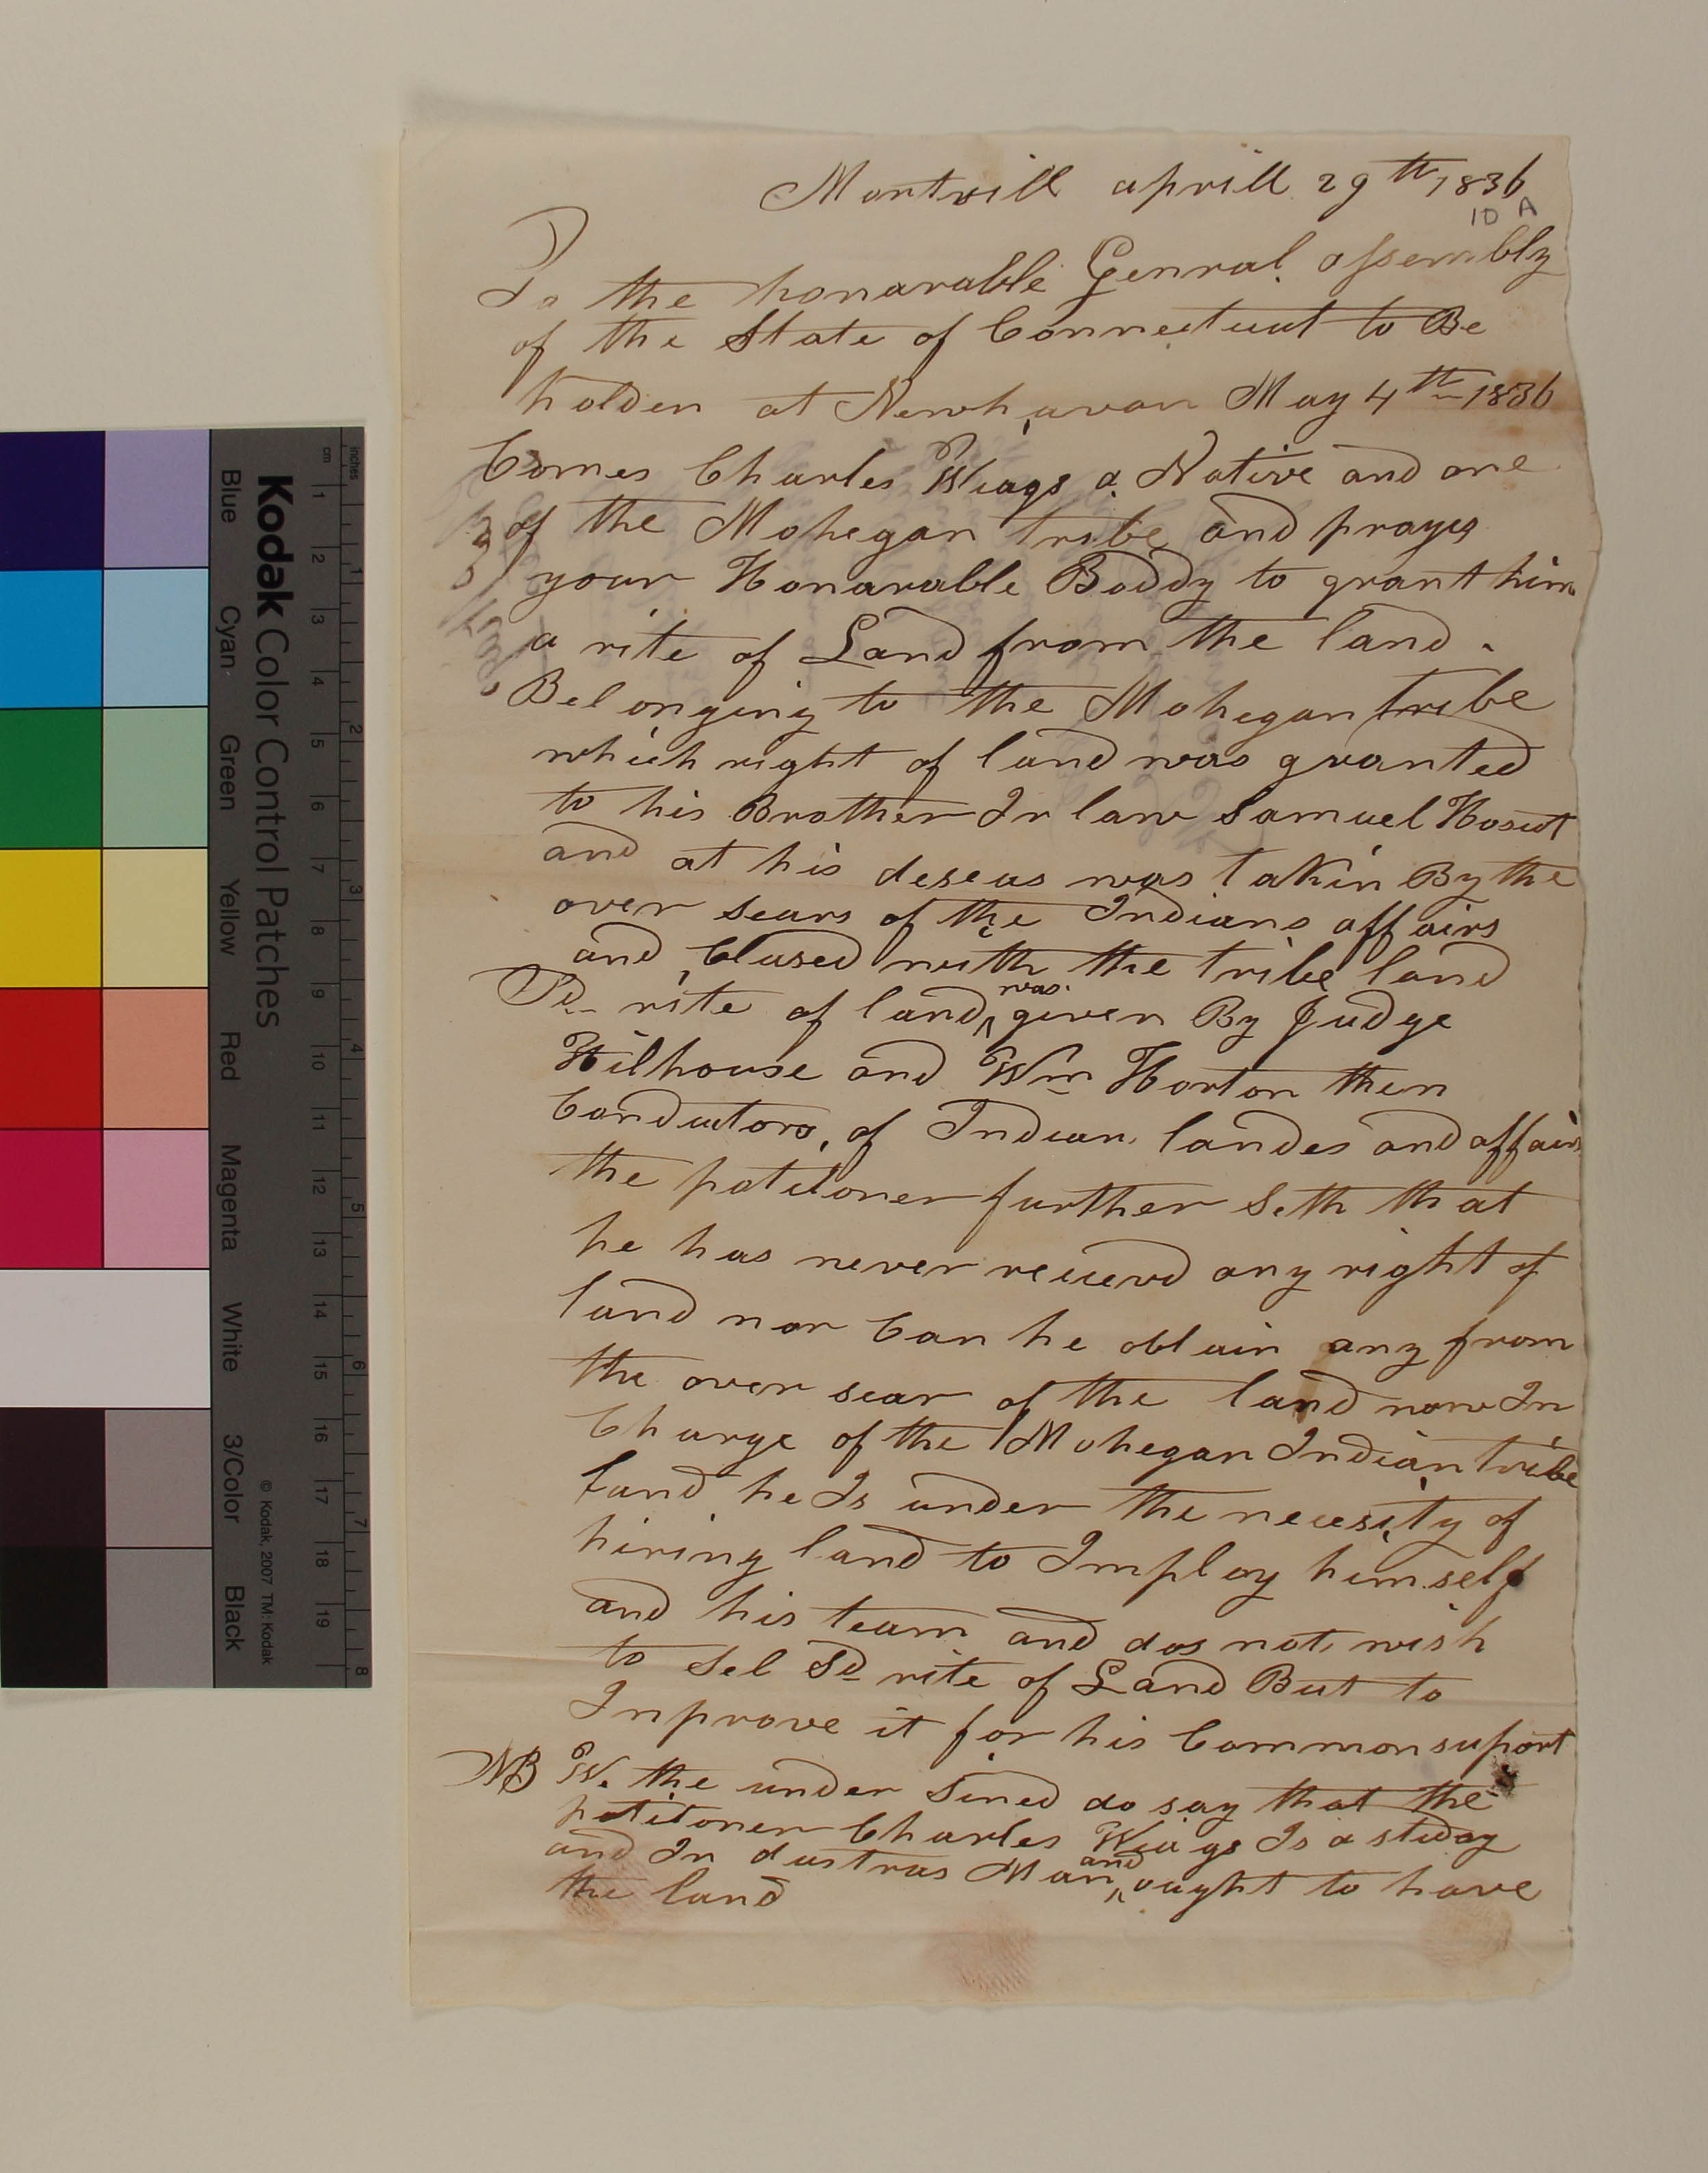 Montvill aprill 29th 1836
10 A
To the honarable Genral assembly
of the State of Connecticut to Be
holden at Newhavan May 4th 1836
Comes Charles Wiags a Native and one
of the Mohegan tribe and prayes
your Honarable Boddy to grant him
a rite of Land from the land
Belonging to the Mohegan tribe
which right of land was granted
to his Brother In law Samuel Hoscut
and at his deseas was takin By the
over sears of the Indians affairs
and Clased with the tribe land
Sd rite of land was given By Judge
Hilhouse and Wm Horton then
Conductors of Indian landes and affairs
the petitoner further Seth that
he has never recievd any right of
land nor Can he obtain any from
the over sear of the land now In
Charge of the Mohegan Indian tribe
land he Is under the necesity of
hiring land to Imploy himself
and his team and dos not wish
to Sel Sd rite of Land But to
Inprove it for his Common suport
NB We the under Sined do say that the
petitoner Charles Wiags Is a studay
and In dustras Man and ought to have
the land
Kodak Color Control Patches
Blue Cyan Green Yellow Red Magenta White 3/Color Black
© Kodak, 2007 TM: Kodak
inches 1 2 3 4 5 6 7 8
cm 1 2 3 4 5 6 7 8 9 10 11 12 13 14 15 16 17 18 19